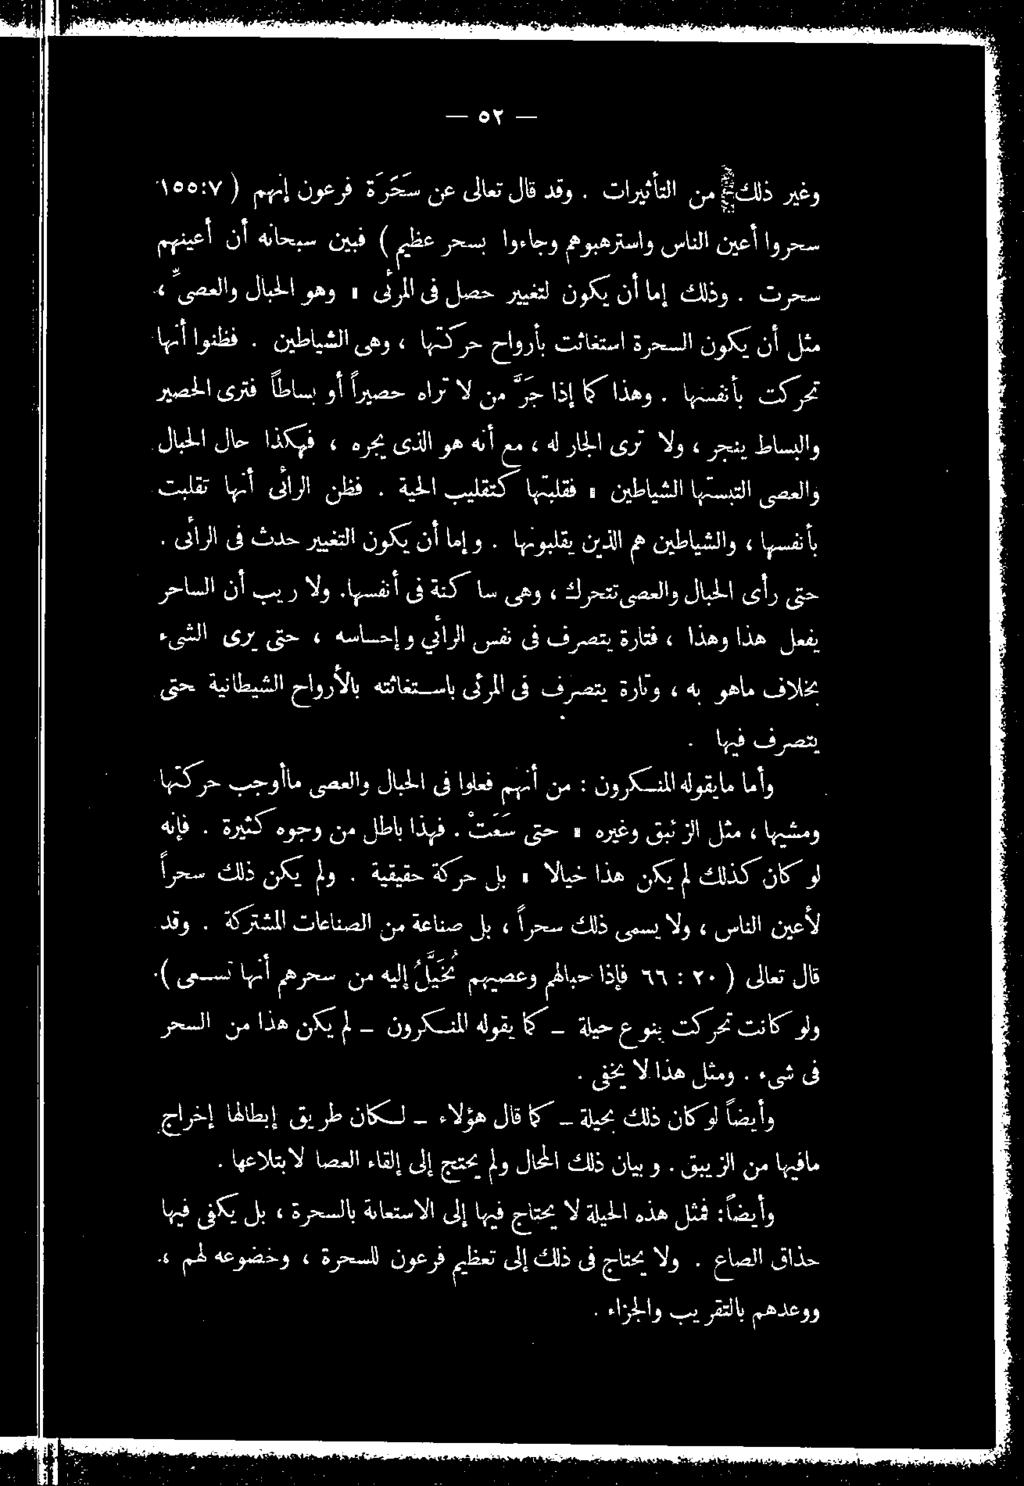 — ٥٢ —
وغير ذلك من التأثيرات . وقد قال تعالى عن سَحَرَة فرعون إنهم ( ٧:١٥٥
سحروا أعين الناس واسترهبوهم وجاءوا بسحر عظيم ) فبين سبحانه أن أعينهم
سحرت . وذلك إما أن يكون لتغيير حصل فى المرئى ، وهو الحبال والعصىّ ،
مثل أن يكون السحرة استغاثت بأرواح حركتها ، وهى الشياطين . فظنوا أنها
تحركت بأنفسها . وهذا كما إذا جَرّ من لا تراه حصيراً أو بساطاً فترى الحصير
والبساط ينجر ، ولا ترى الجار له ، مع أنه هو الذى يجره ، فهكذا حال الحبال
والعصى التبستها الشياطين ، فقلبتها كتقليب الحية . فظن الرائى أنها تقلبت
بأنفسها ، والشياطين هم الذين يقلبونها . وإما أن يكون التغيير حدث فى الرائى .
حتى رأى الحبال والعصى تتحرك ، وهى ساكنة فى أنفسها. ولا ريب أن الساحر
يفعل هذا وهذا ، فتارة يتصرف فى نفس الرائي وإحساسه ، حتى يرى الشىء
بخلاف ماهو به ، وتارة يتصرف فى المرئى باستغاثته بالأرواح الشيطانية حتى
يتصرف فيها .
وأما مايقوله المنكرون : من أنهم فعلوا فى الحبال والعصى ماأوجب حركتها
ومشيها ، مثل الزئبق وغيره ، حتى سَعَتْ . فهذا باطل من وجوه كثيرة . فإنه
لو كان كذلك لم يكن هذا خيالا ، بل حركة حقيقية . ولم يكن ذلك سحراً
لأعين الناس ، ولا يسمى ذلك سحراً ، بل صناعة من الصناعات المشتركة . وقد
قال تعالى ( ٢٠ : ٦٦ فإذا حبالهم وعصيهم يُخَيَّلُ إليه من سحرهم أنها تسعى ) .
ولو كانت تحركت بنوع حيلة – كما يقوله المنكرون – لم يكن هذا من السحر
فى شىء . ومثل هذا لا يخفى .
وأيضاً لو كان ذلك بحيلة – كما قال هؤلاء – لكان طريق إبطالها إخراج
مافيها من الزيبق . وبيان ذلك المحال ولم يحتج إلى إلقاء العصا لابتلاعها .
وأيضاً: فمثل هذه الحيلة لا يحتاج فيها إلى الاستعانة بالسحرة ، بل يكفى فيها
حذاق الصاع . ولا يحتاج فى ذلك إلى تعظيم فرعون للسحرة ، وخضوعه لهم ،
ووعدهم بالتقريب والجزاء .